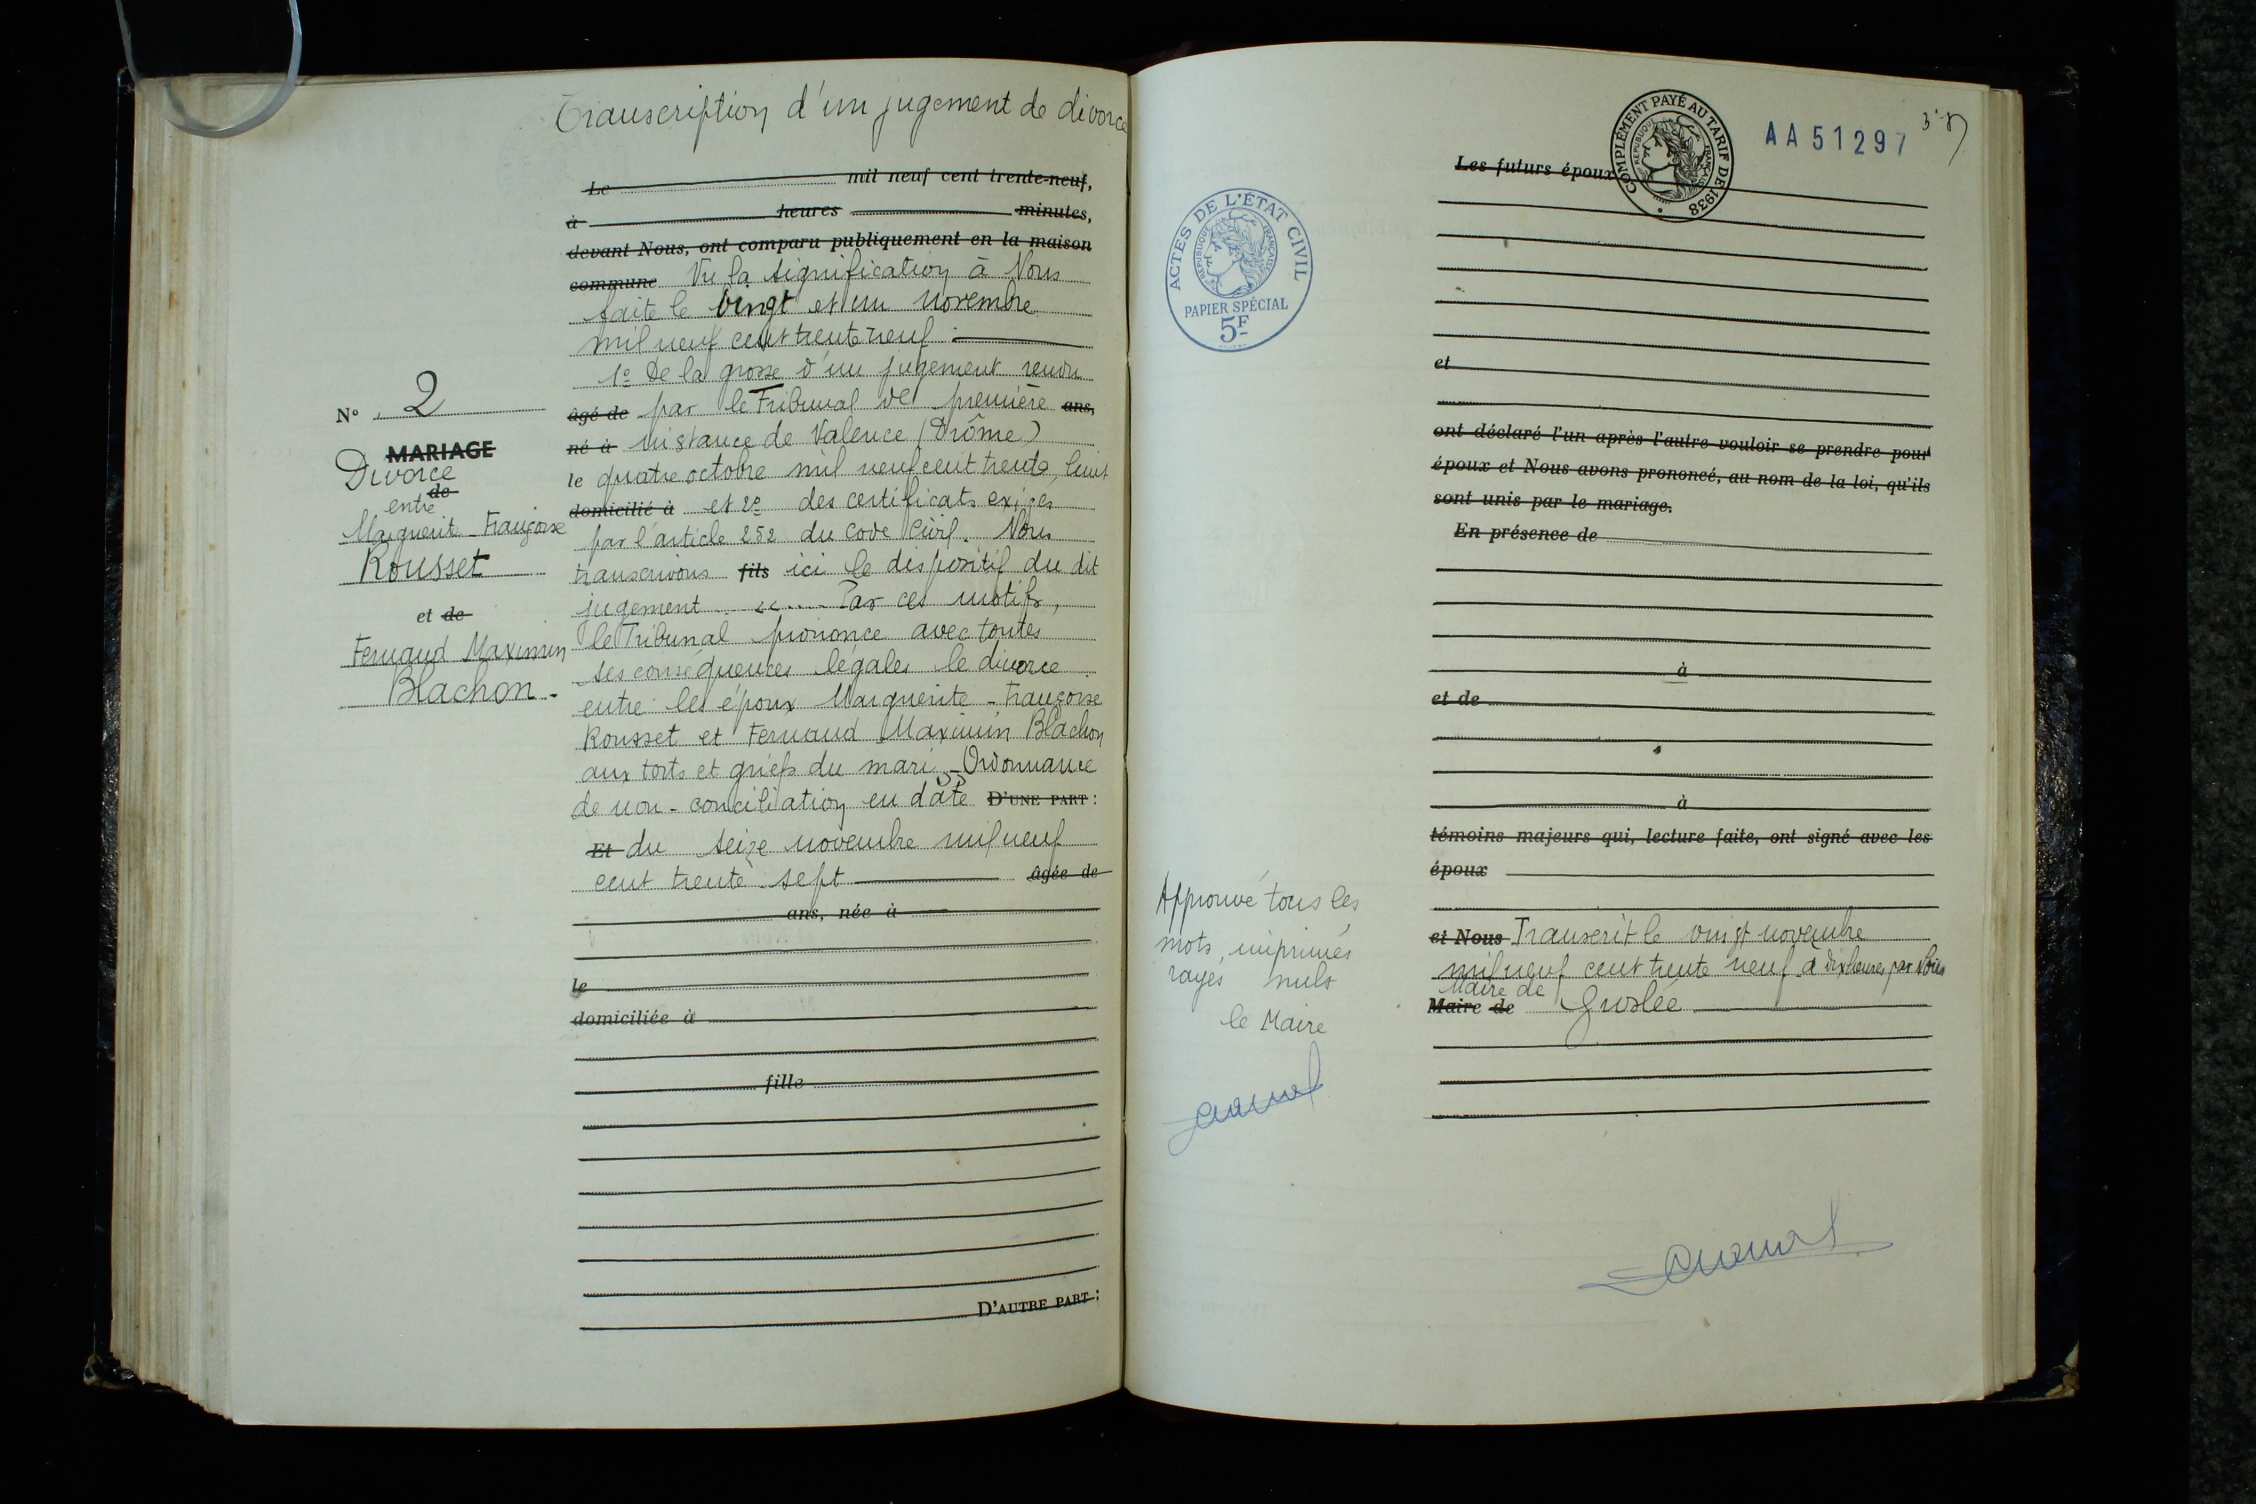 Transcription d'un jugement de divorce
Le mil neuf cent trente-neuf,
à heures minutes,
devant Nous, ont comparu publiquement en la maison
commune Vu la signification à Nous
faite le vingt et un novembre
mil neuf cent trente neuf
1º De la grosse d'un jugement rendu
âgé de par le Tribunal de première ans,
né à instance de Valence (Drôme)
le quatre octobre mil neuf cent trente huit
domicilié à et 2º des certificats exigés
par l'article 252 du code civil. Nous
transcrivons fils ici le dispositif du dit
jugement «.... Par ces motifs,
le Tribunal prononce avec toutes
ses conséquences légales le divorce
entre les époux Marguerite - Françoise
Rousset et Fernand Maximin Blachon
aux torts et griefs du mari - Ordonnance
de non-conciliation en date D'UNE PART :
Et du seize novembre mil neuf
cent trente sept âgée de
ans, née à
le
domiciliée à
fille
D'AUTRE PART :
Nº 2
MARIAGE
Divorce
de
entre
Marguerite - Françoise
Rousset
et de
Fernand Maximin
Blachon -
ACTES DE L'ÉTAT CIVIL
RÉPUBLIQUE FRANÇAISE
PAPIER SPÉCIAL
5F
Approuvé tous les
mots imprimés
rayés nuls
le Maire
COMPLÉMENT PAYÉ AU TARIF DE 1938
RÉPUBLIQUE FRANÇAISE
AA51297
Les futurs époux
et
ont déclaré l'un après l'autre vouloir se prendre pour
époux et Nous avons prononcé, au nom de la loi, qu'ils
sont unis par le mariage.
En présence de
à
et de
à
témoins majeurs qui, lecture faite, ont signé avec les
époux
et Nous Transcrit le vingt novembre
mil neuf cent trente neuf à dix heures par Nous
Maire de
Maire de Groslée